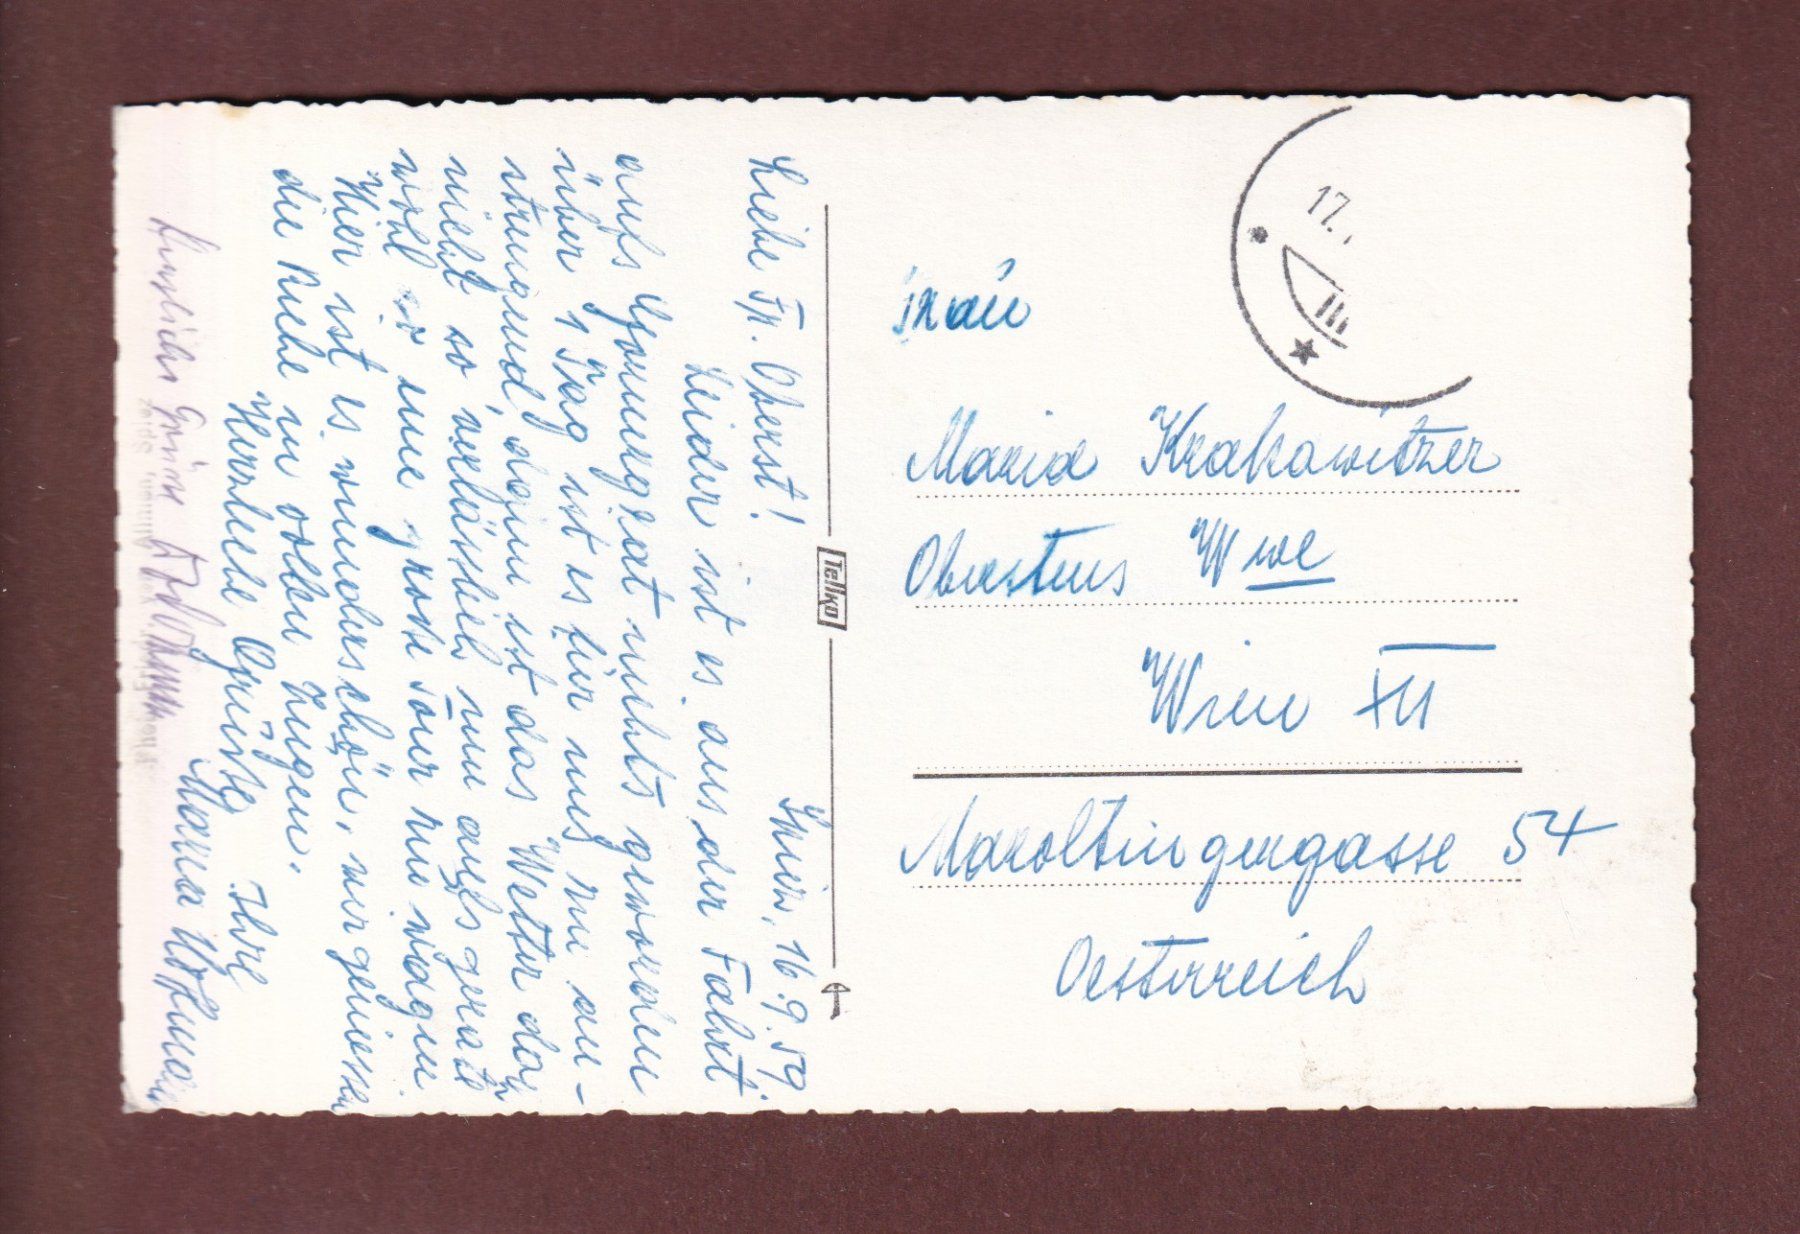 Liebe Fr. Oberst!
16.9.59.
Leider ist es aus der Fahrt
aufs Gornergrat nichts geworden
über 1 Tag ist es für uns zu an-
strengend, dann ist das Wetter dazu
nicht so verlässlich um aufs gerate
wohl so eine grosse Tour zu wagen
Hier ist es wunderschön, wir geniessen
die Ruhe in vollen Zügen.
Herzliche Grüsse Ihre
Maria
Herzliche Grüsse
Telko
17.
Frau
Maria Krakowitzer
Oberstens Wwe
Wien XII
Maroltingergasse 54
Oesterreich